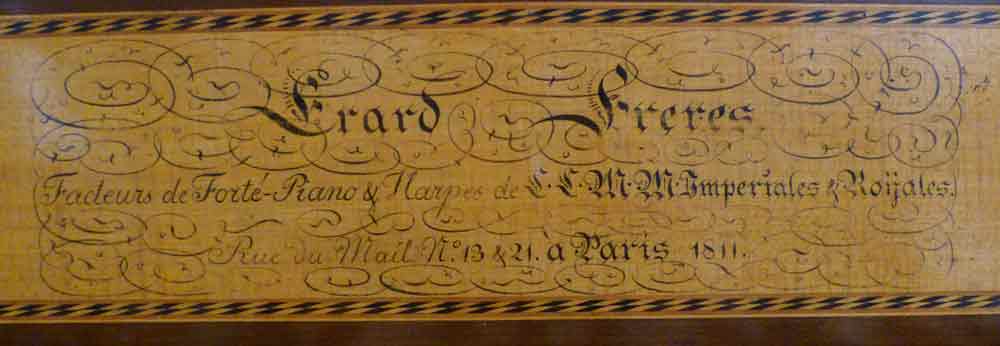 Erard Freres.
Facteurs de Forté-Piano & Harpes de L. L. M. M. Imperiales & Roÿales.
Rue du Mail N.º 13 & 21. à Paris 1811.